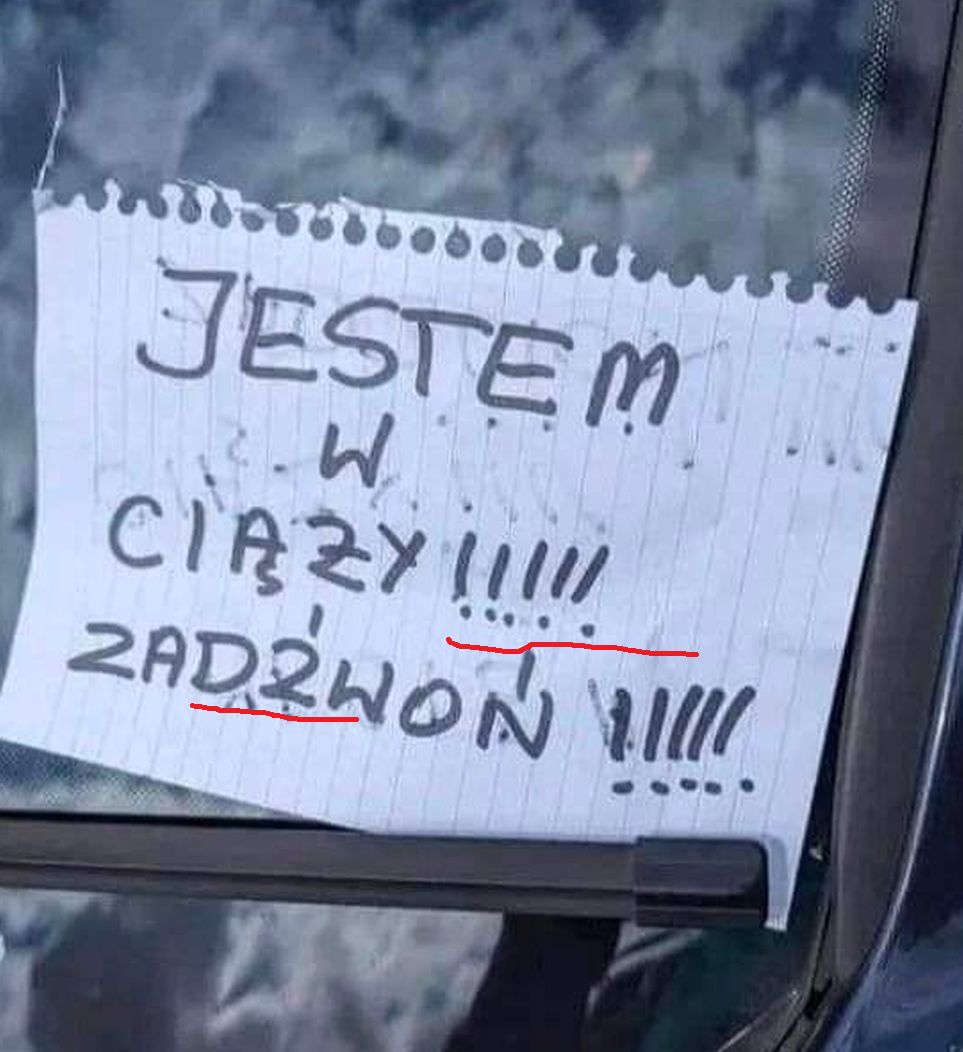 JESTEM
W
CIĄŻY !!!!!
ZADŹWOŃ !!!!!